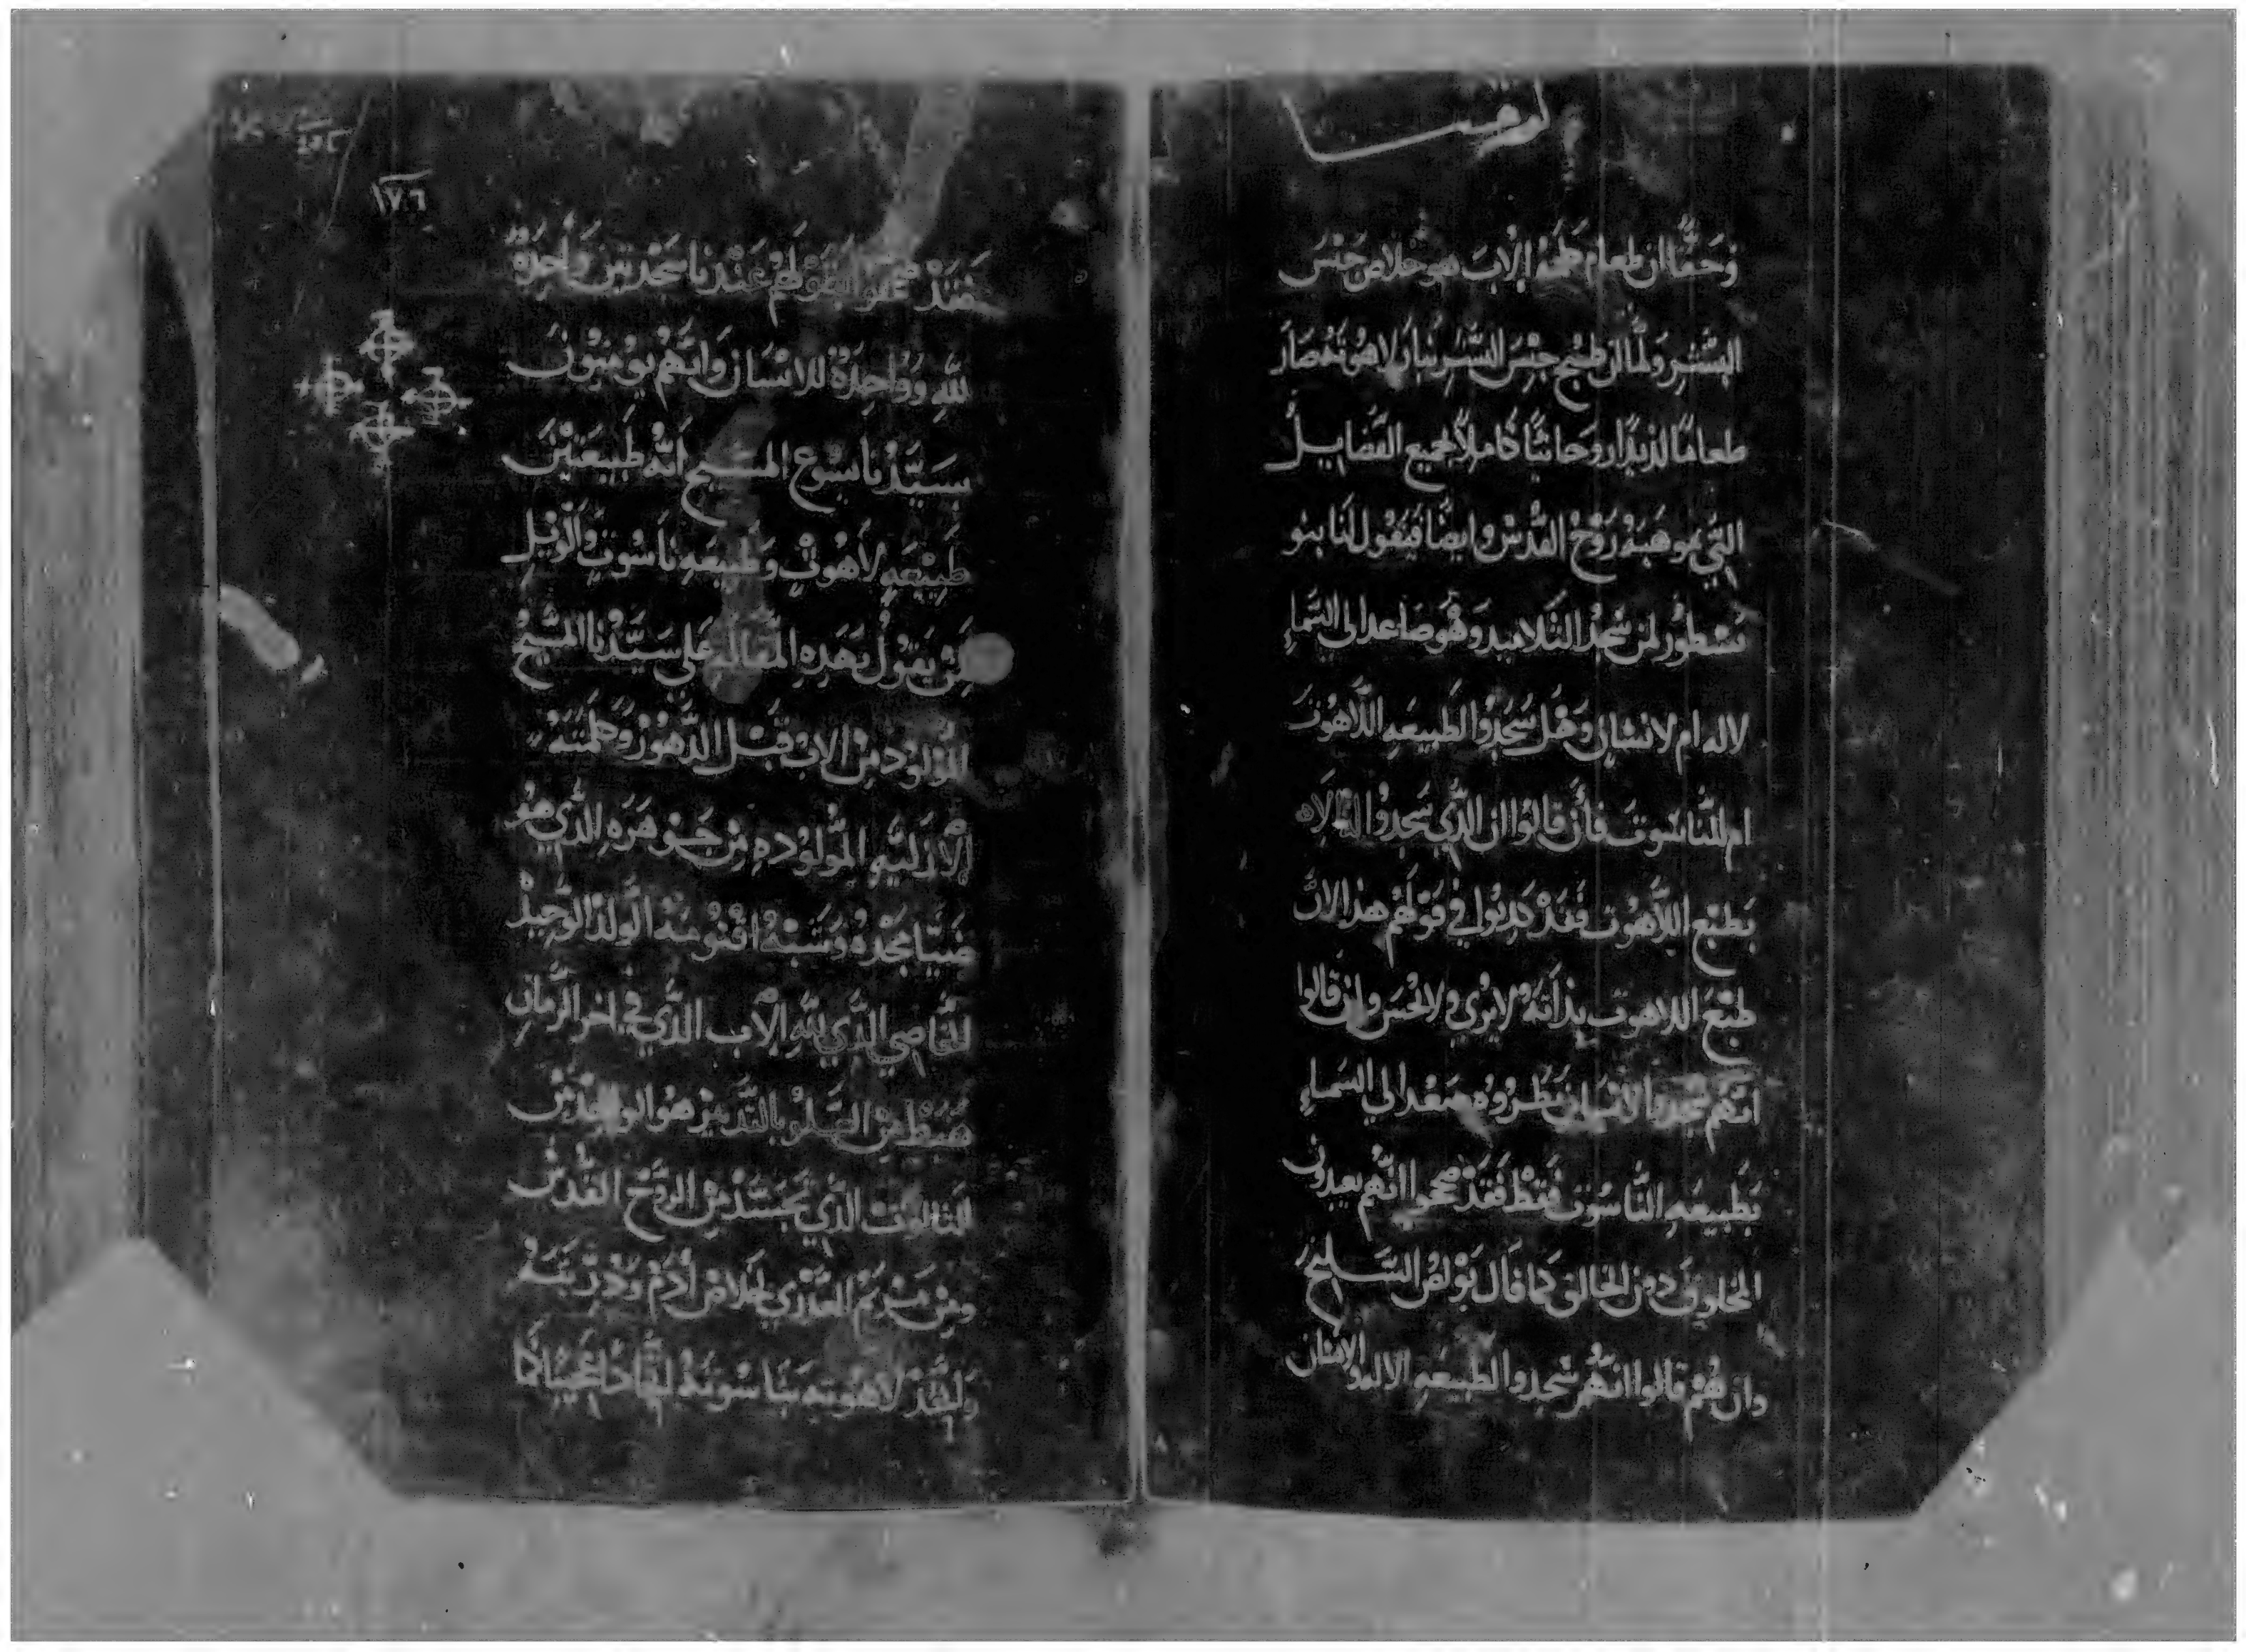 وَحَقًّا ان طعام طبخهُ الابَ هو خلاص جنسَ
البَشَرِ ولمَّا ان طبخ جِنسَ البشرِ بنار لاهوتهُ صَارَ
طعامًا لذيذًا روحانيًّا كاملاً بجميع الفضَايلْ
التي بموهبة رُوحُ القُدسْ وايضًا فنقول لنا بنو
نسْطورْ لمن سَجدُ التلاميد وهُوَ صَاعدا الي السَّماءِ
لاله ام لانسَانٍ وهَل سَجَدُوا لطبيعَه اللاهوتَ
ام للنَّاسُوتَ فأن قالوا ان الذّي سَجدُوا الاه
بطبْع اللاهوت فقدْ كدبُوا في قولهُمْ هدا لانَّ
طبْع اللاهوت بذاتهُ لا يرَي ولا يُحسَ وان قالوا
انّهُم سجدوا لانسان نظروُه صَعد الي السَماءِ
بطبيعَه النَّاسُوت فقطْ فقدْ صححوا انّهُم يعبدون
المخلوقَ دون الخالق كما قالَ بَوْلصُ السَّليح
وان هُمْ قالوا انهُم سَجدوا لطبيعَه الاله والانسان
١٧٦
فقدْ صححوا بقولهُم عنْدنا سَجْدتين وَاحِدَهْ
للهِ ووَاحِدَهْ للانسَان وَانهُمْ يومنونَ
بسَيّدْنا يَسُوع المسَيح انّهُ طَبيعتيْن
طَبيْعَه لاهُوتٍ وَطبيعَه ناسُوتٍ والوَيل
لمن يقولُ بهَدِه المقاله عَلي سَيّدنا المسَّيحْ
المولود من الاب قبْل الدهُورْ وكلمتهْ
الازليّه المولودهِ من جَوهَرهِ الذي هُو
ضيَا مجْدهُ وشَبهُ اقنومهْ الوَلدْ الوَحيدْ
الخاصي الذّي للهِ الاب الذّي في اخر الزمان
هَبط من العلو بالتدبير هو الواحد من
الثالوت الذّي تجسَّدْ من الروُحْ القُدسْ
ومن مَريَم العدْري لخلاص آدَمْ وَدُرّيتهْ
واتحدْ لاهُوتهِ بناسُوتهُ اتحادًا عجيبًا كما